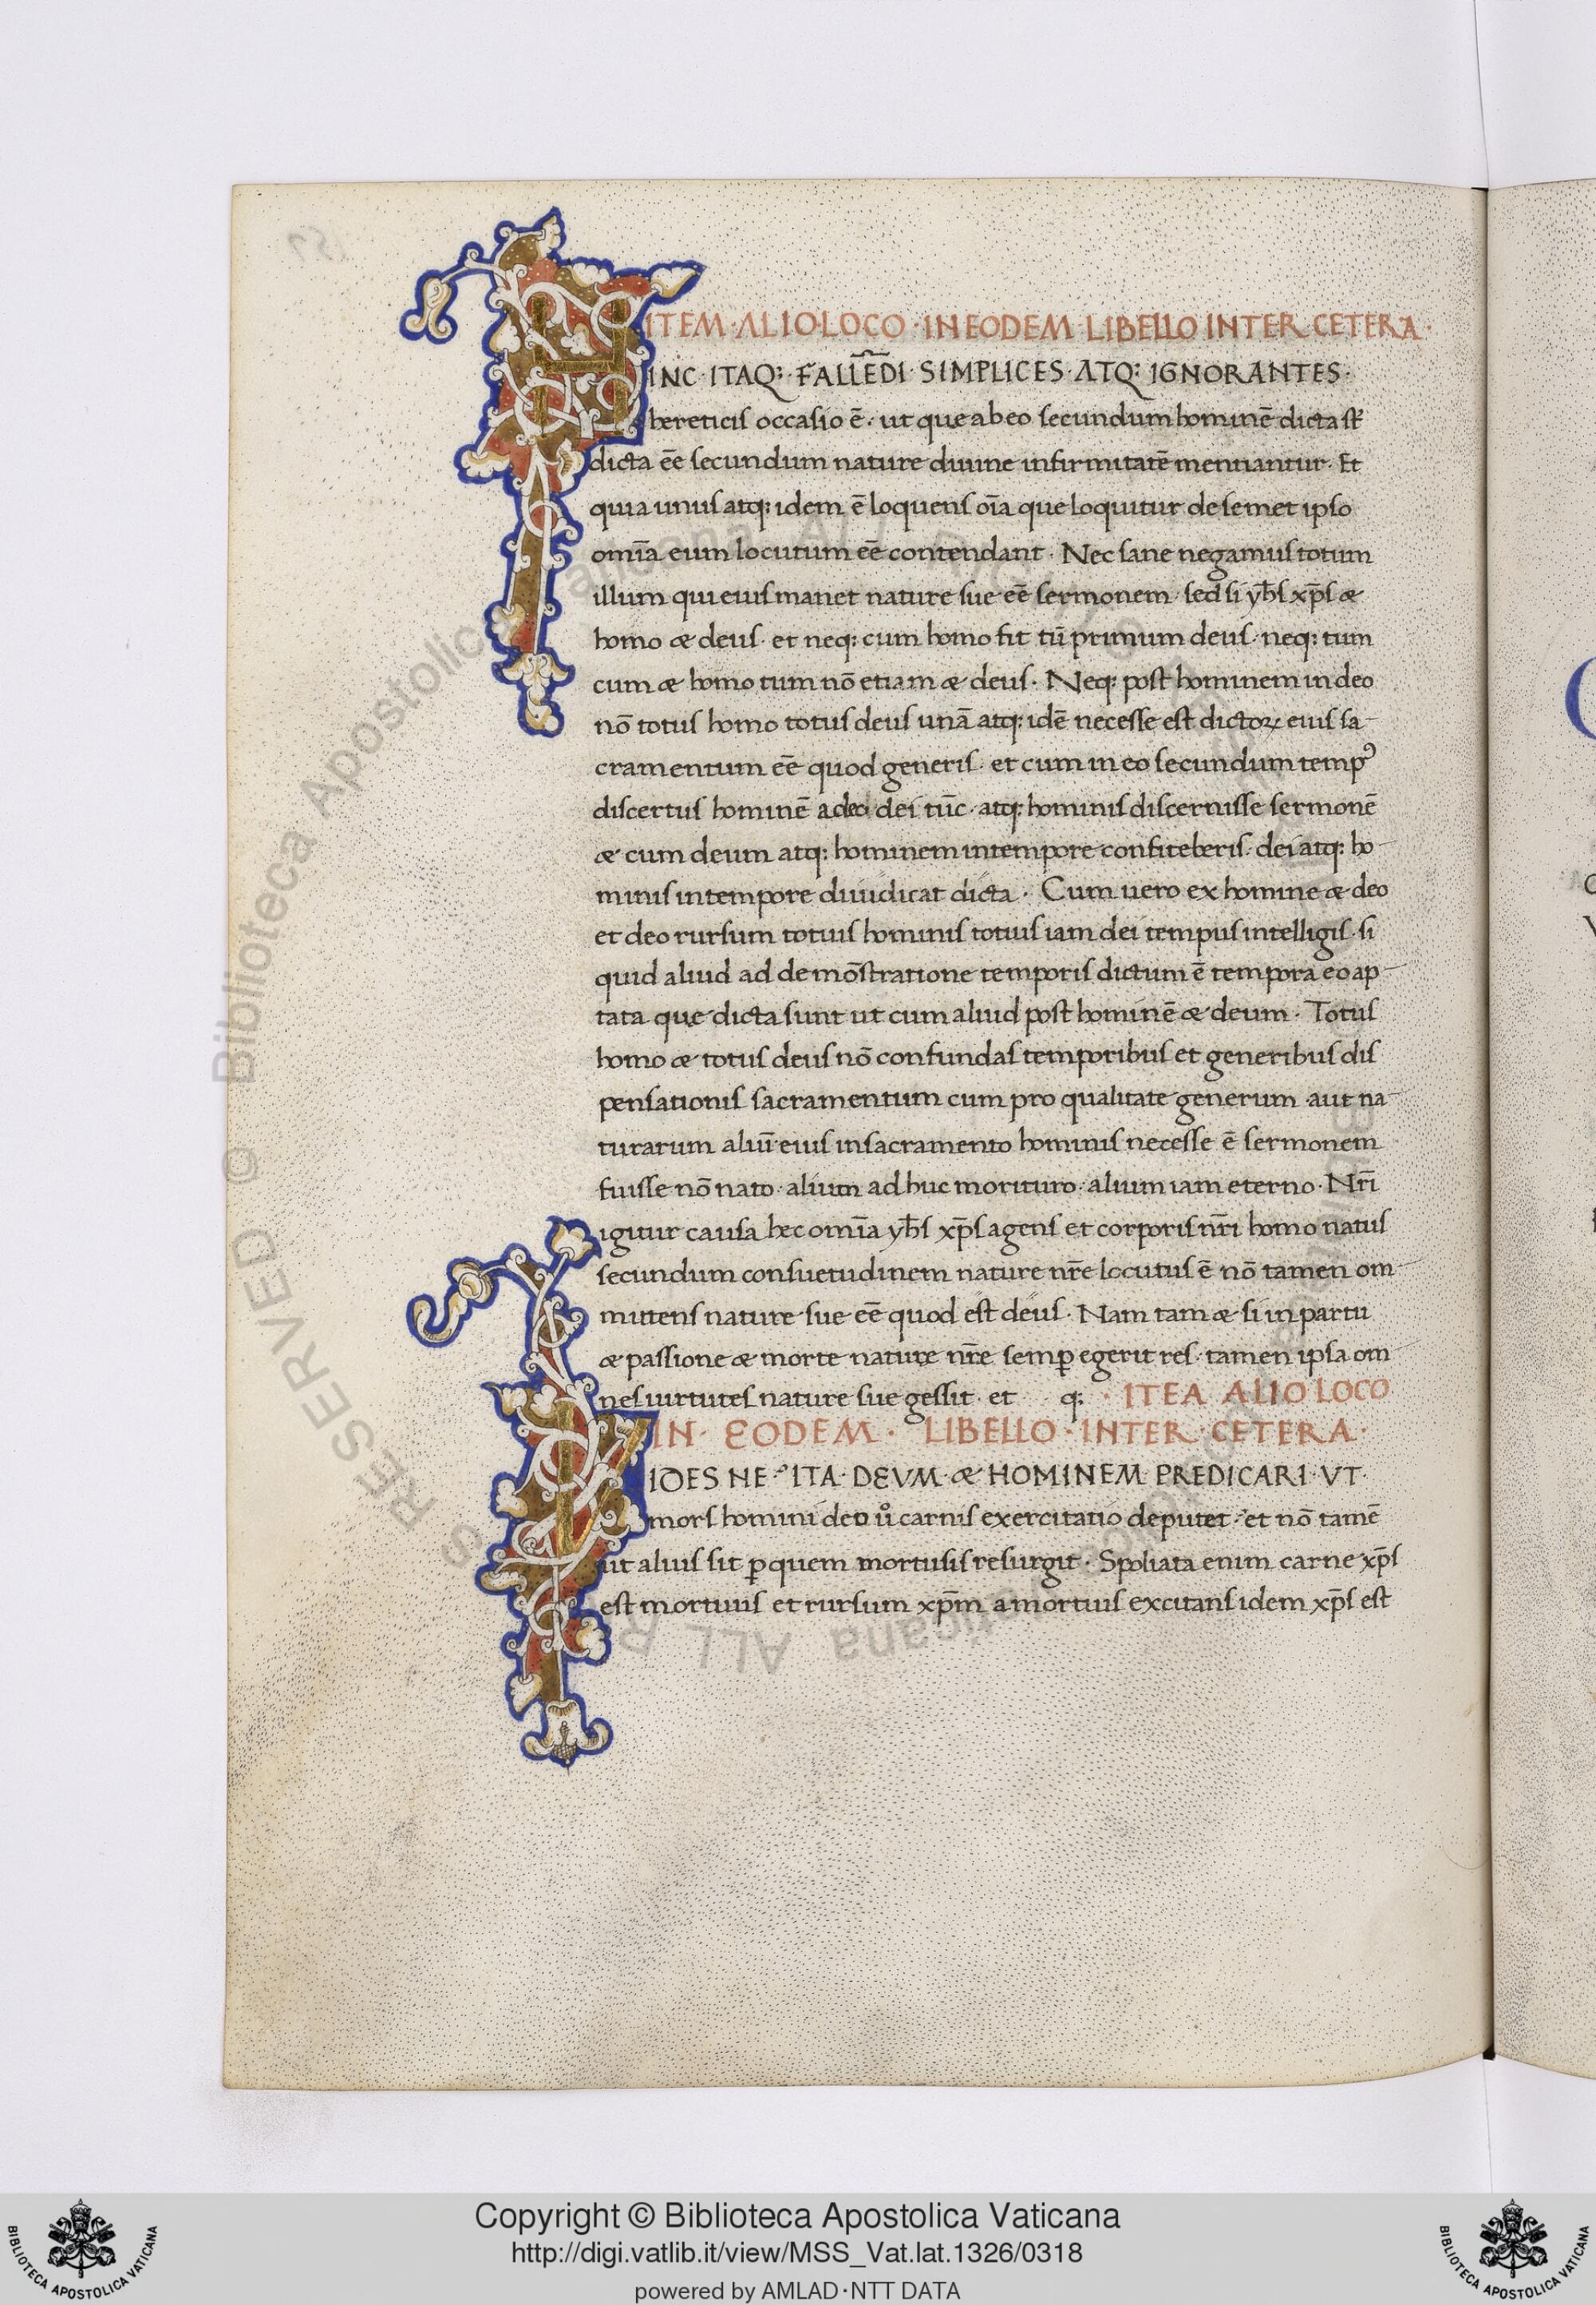 ITEM·ALIO·LOCO·IN EODEM·LIBELLO INTER CETERA·
HINC·ITAQ:·FALLĒDI·SIMPLICES·ATQ: IGNORANTES·
hereticis occasio ē· ut que ab eo secundum hominē dicta st̄
dicta ēe secundum nature diuine infirmitatē mentiantur· Et
quia unus atq: idem ē loquens oīa que loquitur de semet ipso
omīa eum locutum ēe contendant· Nec sane negamus totum
illum qui eius manet nature sue ēe sermonem· sed si yh̄s xp̄s æ
homo æ deus· et neq: cum homo fit tū primum deus· neq: tum
cum æ homo tum nō etiam æ deus· Neq: post hominem in deo
nō totus homo totus deus unā atq: idē necesse est dictoꝝ eius sa-
cramentum ēe quod generis· et cum in eo secundum temp᾽
discertus hominē a deo dei tūc· atq: hominis discernisse sermonē
æ cum deum atq: hominem in tempore confiteberis· dei atq: ho-
minis in tempore diiudicat dicta· Cum uero ex homine æ deo
et deo rursum totius hominis totius iam dei tempus intelligis· si
quid aliud ad demōstratione temporis dictum ē tempora eo ap-
tata que dicta sunt ut cum aliud post hominē æ deum· Totus
homo æ totus deus nō confundas temporibus et generibus dis
pensationis sacramentum cum pro qualitate generum aut na-
turarum aliū eius in sacramento hominis necesse ē sermonem
fuisse nō nato· alium adhuc morituro· alium iam eterno· Nr̄i
igitur causa hec omīa yh̄s xp̄s agens et corporis nr̄i homo natus
secundum consuetudinem nature nr̄e locutus ē nō tamen om-
mittens nature sue ēe quod est deus· Nam tam æ si in partu
æ passione æ morte nature nr̄e semꝑ egerit res· tamen ipsa om-
nes uirtutes nature sue gessit· et q: · ITEA ALIO LOCO
IN· EODEM· LIBELLO·INTER·CETERA·
VIDES NE ITA·DEVM·æ HOMINEM PREDICARI·VT·
mors homini deo ů carnis exercitatio deputet· et nō tamē
ut alius sit ꝑ quem mortusis resurgit· Spoliata enim carne xp̄s
est mortuus et rursum xp̄m a mortuis excitans idem xp̄s est
Copyright © Biblioteca Apostolica Vaticana
http://digi.vatlib.it/view/MSS_Vat.lat.1326/0318
powered by AMLAD·NTT DATA
BIBLIOTECA APOSTOLICA VATICANA
BIBLIOTECA APOSTOLICA VATICANA